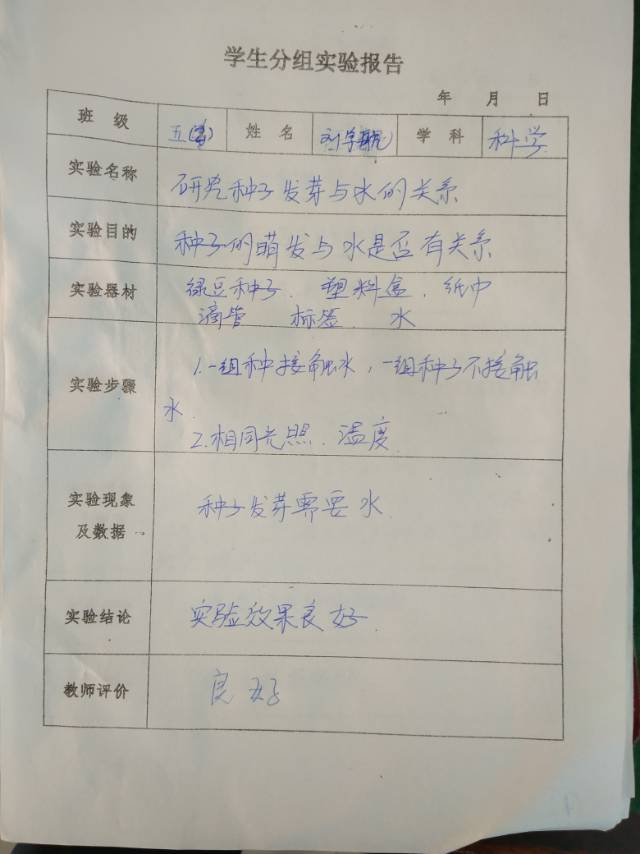 学生分组实验报告
年 月 日
班级 五 姓名 刘宇 学科 科学
实验名称 研究种子发芽与水的关系
实验目的 种子的萌发与水是否有关系
实验器材 绿豆种子、塑料盒、纸巾
滴管 标签、水
实验步骤 1.一组种接触水，一组种子不接触
水.
2.相同光照、温度
实验现象
及数据
种子发芽需要水
实验结论 实验效果良好.
教师评价 良好